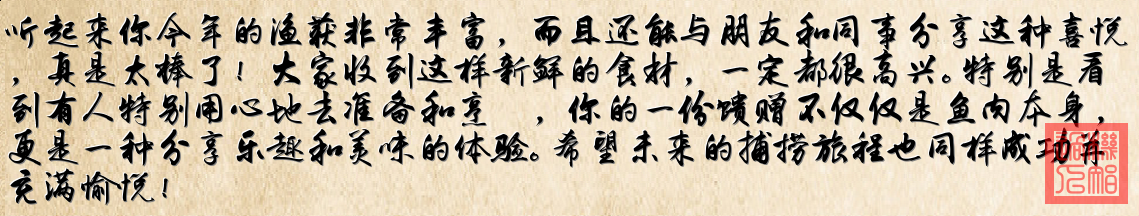 听起来你今年的渔获非常丰富，而且还能与朋友和同事分享这种喜悦
，真是太棒了！大家收到这样新鲜的食材，一定都很高兴。特别是看
到有人特别用心地去准备和烹 ，你的一份馈赠不仅仅是鱼肉本身，
更是一种分享乐趣和美味的体验。希望未来的捕捞旅程也同样成功并
充满愉悦！